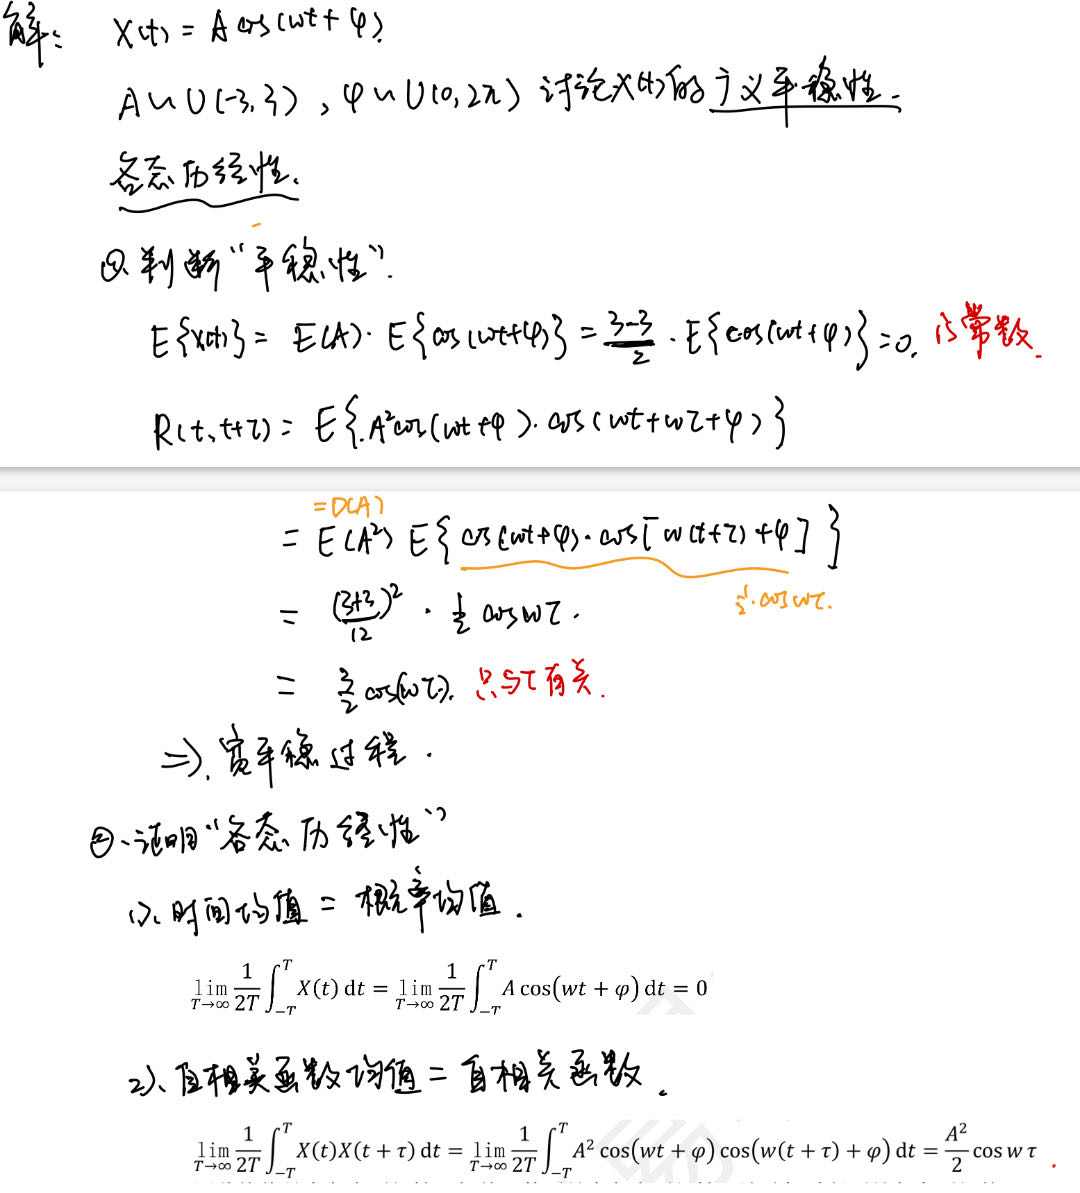 解: X(t) = A cos(wt + φ).
A ~ U(-3, 3), φ ~ U(0, 2π) 讨论X(t)的广义平稳性.
各态历经性.
①. 判断“平稳性”.
E{X(t)} = E(A) · E{cos(wt+φ)} = \frac{3-3}{2} · E{cos(wt+φ)} = 0. 为常数.
R(t, t+τ) = E{A²cos(wt+φ) · cos(wt+wτ+φ)}
=D(A)
= E(A²) E{cos(wt+φ) · cos[w(t+τ)+φ]}
\frac{1}{2}·cos wτ.
= \frac{(3+3)^2}{12} · \frac{1}{2} cos wτ.
= \frac{3}{2} cos(wτ). 只与τ有关.
⇒. 宽平稳过程.
②. 证明“各态历经性”
1). 时间均值 = 概率均值.
\lim_{T→∞} \frac{1}{2T} \int_{-T}^{T} X(t) dt = \lim_{T→∞} \frac{1}{2T} \int_{-T}^{T} A cos(wt + φ) dt = 0
2). 自相关函数均值 = 自相关函数.
\lim_{T→∞} \frac{1}{2T} \int_{-T}^{T} X(t)X(t + τ) dt = \lim_{T→∞} \frac{1}{2T} \int_{-T}^{T} A² cos(wt + φ) cos(w(t + τ) + φ) dt = \frac{A²}{2} cos w τ .